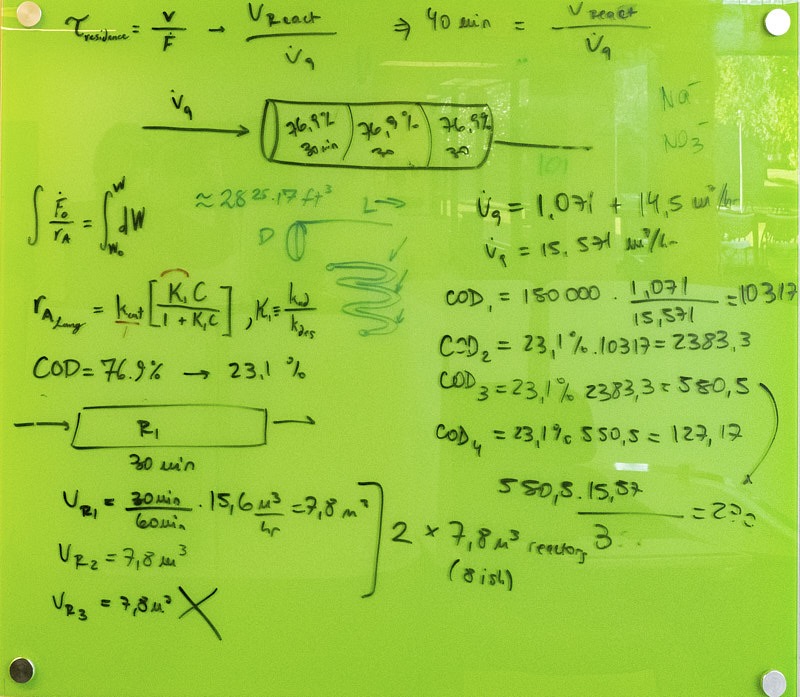 τ_residence = V/Ḟ → V_React/V̇_q ⇒ 40 min = V_react/V̇_q
V̇_q
76,9% 76,9% 76,9%
30min 30 30
Na⁻
NO₃⁻
101
∫ Ḟ₀/r_A = ∫_{W₀}^{W} dW
≈ 2825.17 ft³
L→
D
V̇_q = 1,071 + 14,5 m³/hr
V̇_q = 15,571 m³/hr
r_{A Lang} = k_cat [K₁C / 1 + K₁C], K₁ = k_ad/k_des
COD₁ = 150 000 · 1,071/15,571 = 10317
COD₂ = 23,1% · 10317 = 2383,3
COD = 76.9% → 23,1 %
COD₃ = 23,1% 2383,3 = 580,5
COD₄ = 23,1% 550,5 = 127,17
R₁
30 min
580,5 · 15,57 / 3 =
V_R₁ = 30min/60min · 15,6 m³/hr = 7,8 m³
V_R₂ = 7,8 m³
V_R₃ = 7,8 m³ X
2 × 7,8 m³ reactors
(8 ish)